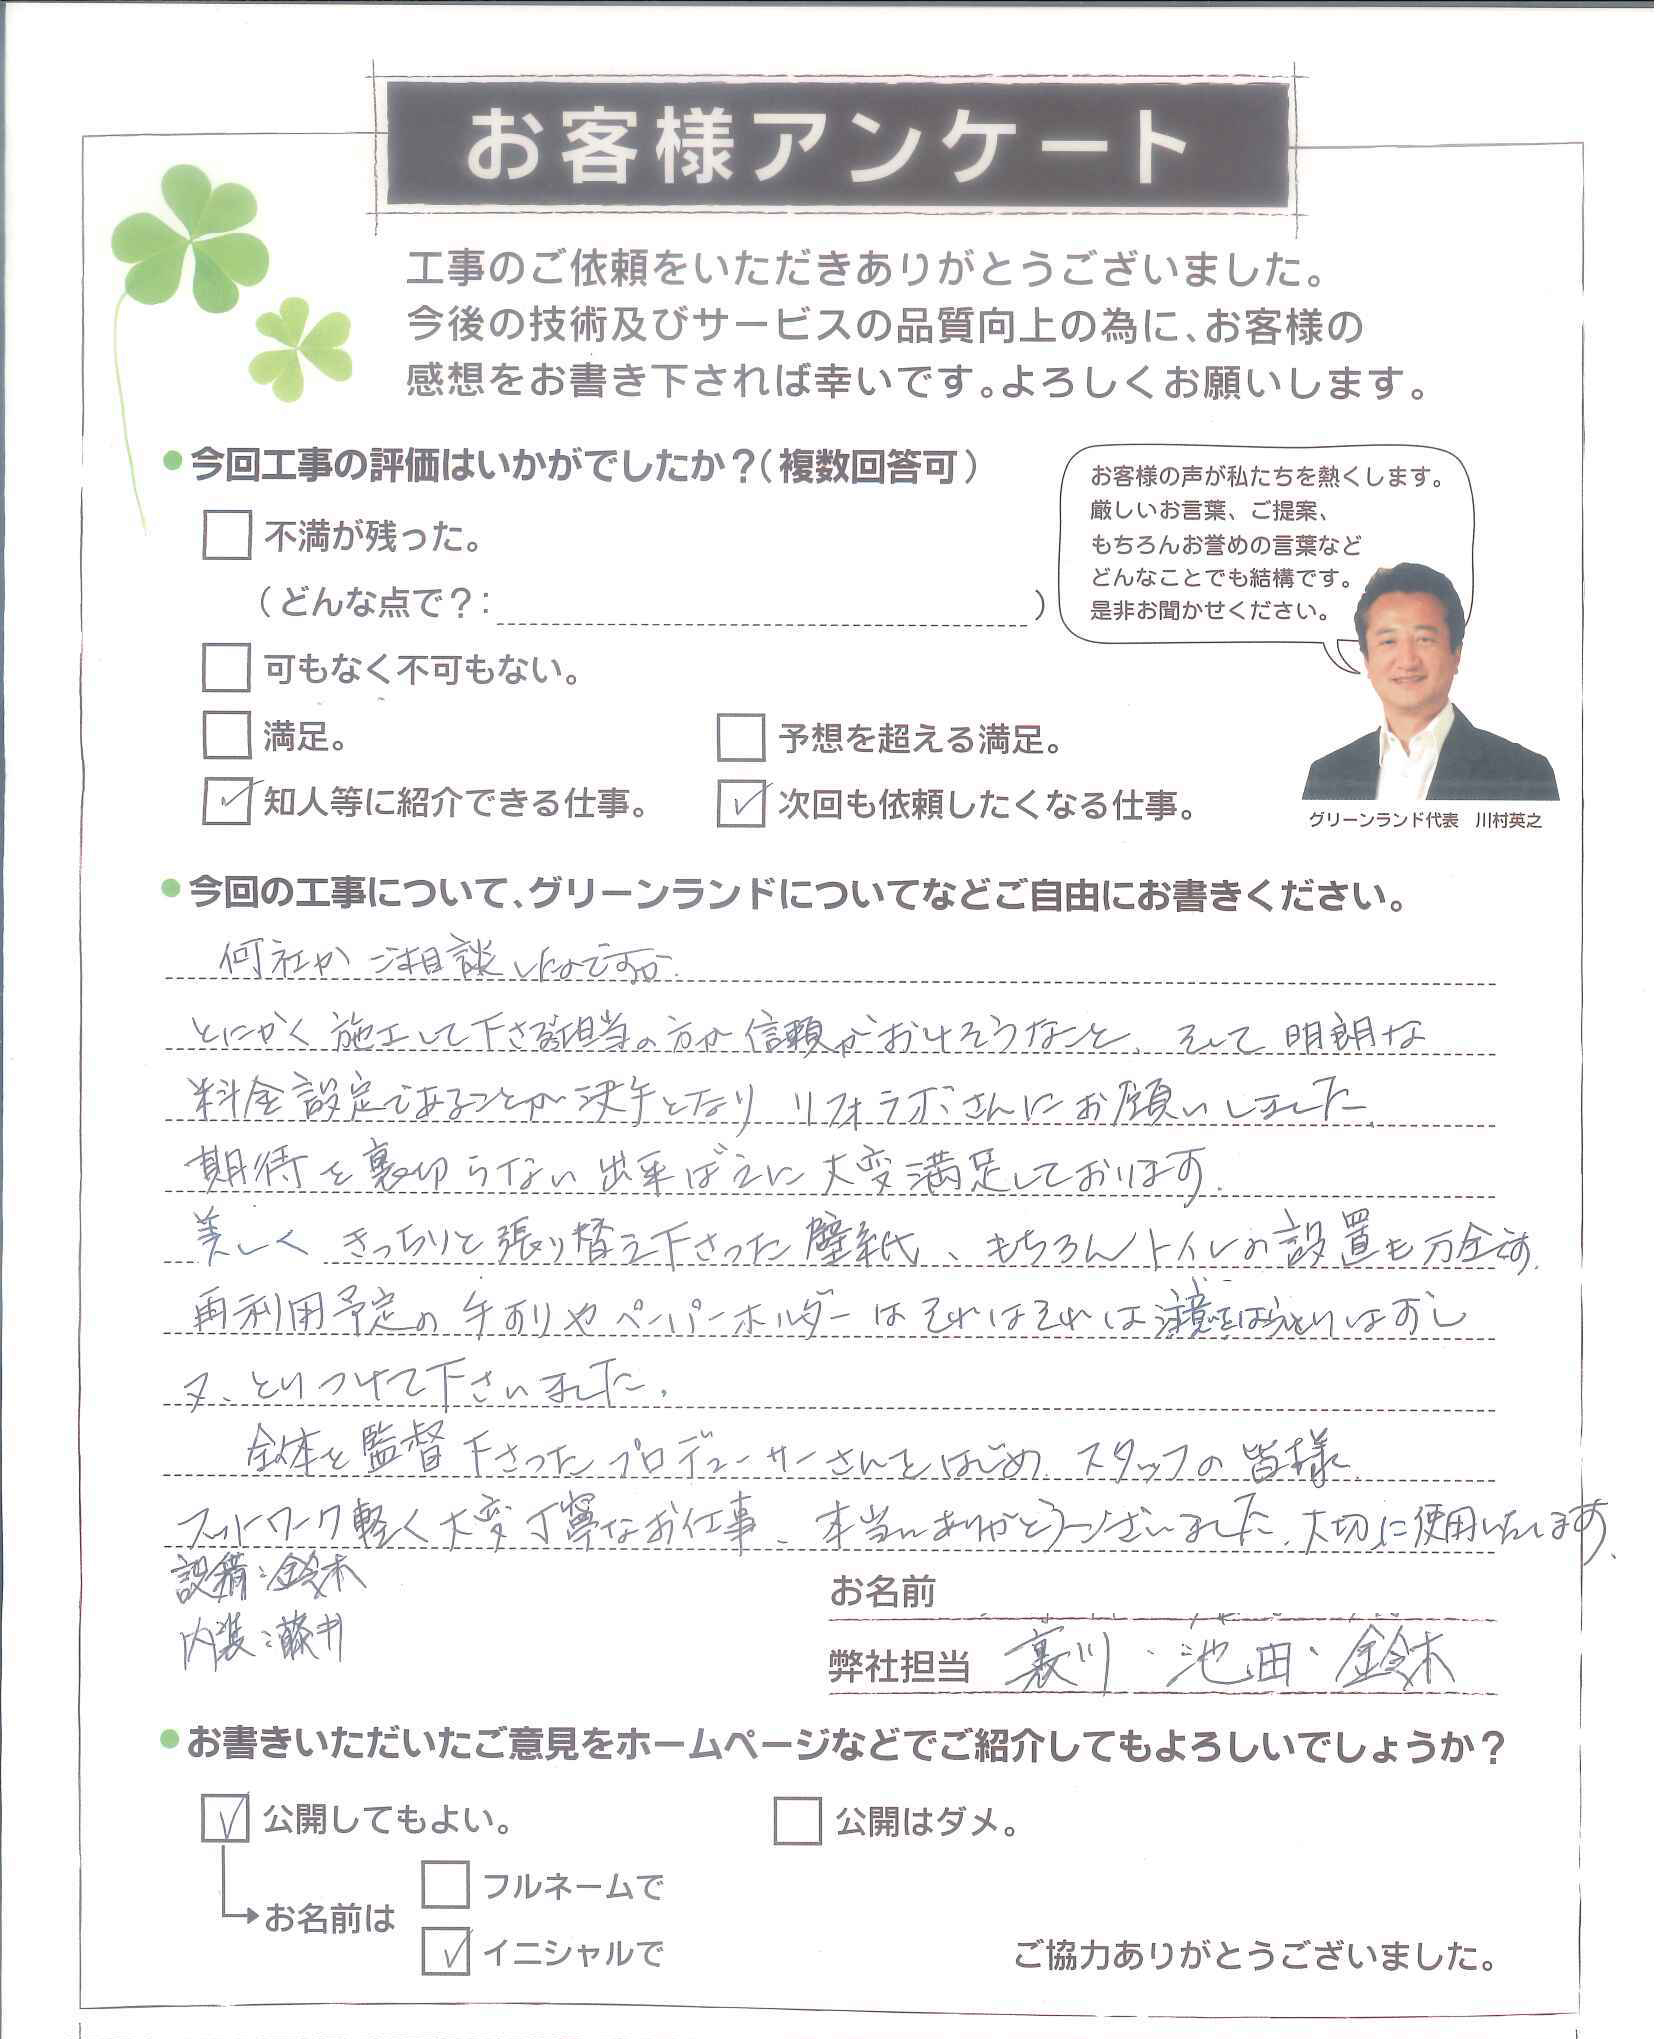 お客様アンケート
工事のご依頼をいただきありがとうございました。
今後の技術及びサービスの品質向上の為に、お客様の
感想をお書き下されば幸いです。よろしくお願いします。
今回工事の評価はいかがでしたか？（複数回答可）
お客様の声が私たちを熱くします。
厳しいお言葉、ご提案、
もちろんお誉めの言葉など
どんなことでも結構です。
是非お聞かせください。
不満が残った。
（どんな点で？： ）
可もなく不可もない。
満足。
予想を超える満足。
知人等に紹介できる仕事。
次回も依頼したくなる仕事。
グリーンランド代表 川村英之
今回の工事について、グリーンランドについてなどご自由にお書きください。
何社かご相談したのですが、
とにかく施工して下さる御担当の方が信頼がおけそうなこと、そして明朗な
料金設定であることが決手となり リフォラボさんにお願いしました。
期待を裏切らない出来ばえに大変満足しております。
美しくきっちりと張り替え下さった壁紙、もちろんトイレの設置も万全です。
再利用予定の手すりやペーパーホルダーはそれはそれは注意をはらいとりはずし
又、とりつけて下さいました。
全体を監督下さったプロデューサーさんをはじめ、スタッフの皆様、
フットワーク軽く大変丁寧なお仕事、本当にありがとうございました。大切に使用いたします。
設備：鈴木
内装：藤井
お名前
弊社担当 裏川・池田・鈴木
お書きいただいたご意見をホームページなどでご紹介してもよろしいでしょうか？
公開してもよい。
公開はダメ。
お名前は
フルネームで
イニシャルで
ご協力ありがとうございました。